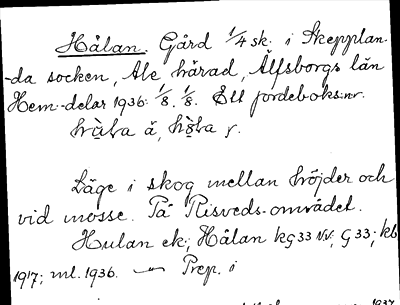 Hålan. Gård 1/4 sk. i Skepplan-
-da socken, Ale härad, Älfsborgs län
Hem.-delar 1936: 1/8. 1/8. Ett jordeboks:nr.
Läge i skog mellan höjder och
vid mosse. På Risveds-området.
Hulan ek; Hålan kG33 NV; G33; kb
1917; ml. 1936. — Prep. i
1937